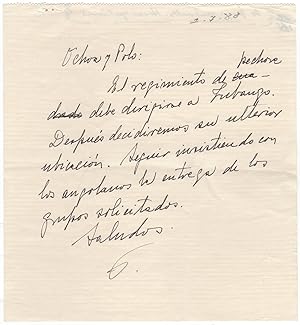 2-7-88
Ochoa y Polo:
El regimiento de pechora
debe dirigirse a Lubango.
Después decidiremos su ulterior
ubicación. Seguir insistiendo con
los angolanos la entrega de los
grupos solicitados.
Saludos.